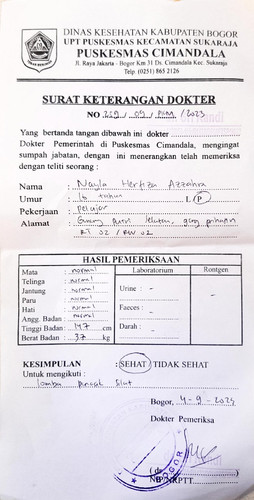 DINAS KESEHATAN KABUPATEN BOGOR
UPT PUSKESMAS KECAMATAN SUKARAJA
PUSKESMAS CIMANDALA
Jl. Raya Jakarta - Bogor Km 31 Ds. Cimandala Kec. Sukaraja
Telp. (0251) 865 2126
SURAT KETERANGAN DOKTER
NO 229 / 09 / PKM / 2023
Yang bertanda tangan dibawah ini dokter
Dokter Pemerintah di Puskesmas Cimandala, mengingat
sumpah jabatan, dengan ini menerangkan telah memeriksa
dengan teliti seorang :
Nama : Nayla Herfiza Azzahra
Umur : tahun L/P
Pekerjaan : pelajar
Alamat :
RT 02 / RW 02
HASIL PEMERIKSAAN
Mata : normal Laboratorium Rontgen
Telinga : normal
Jantung : normal Urine : -
Paru : normal -
Hati : normal Faeces : -
Angg. Badan : normal
Tinggi Badan : 147 cm Darah : -
Berat Badan : 37 kg
KESIMPULAN : SEHAT / TIDAK SEHAT
Untuk mengikuti :
lomba Pencak Silat
Bogor, 4-9-2023
Dokter Pemeriksa
(dr
BOGOR